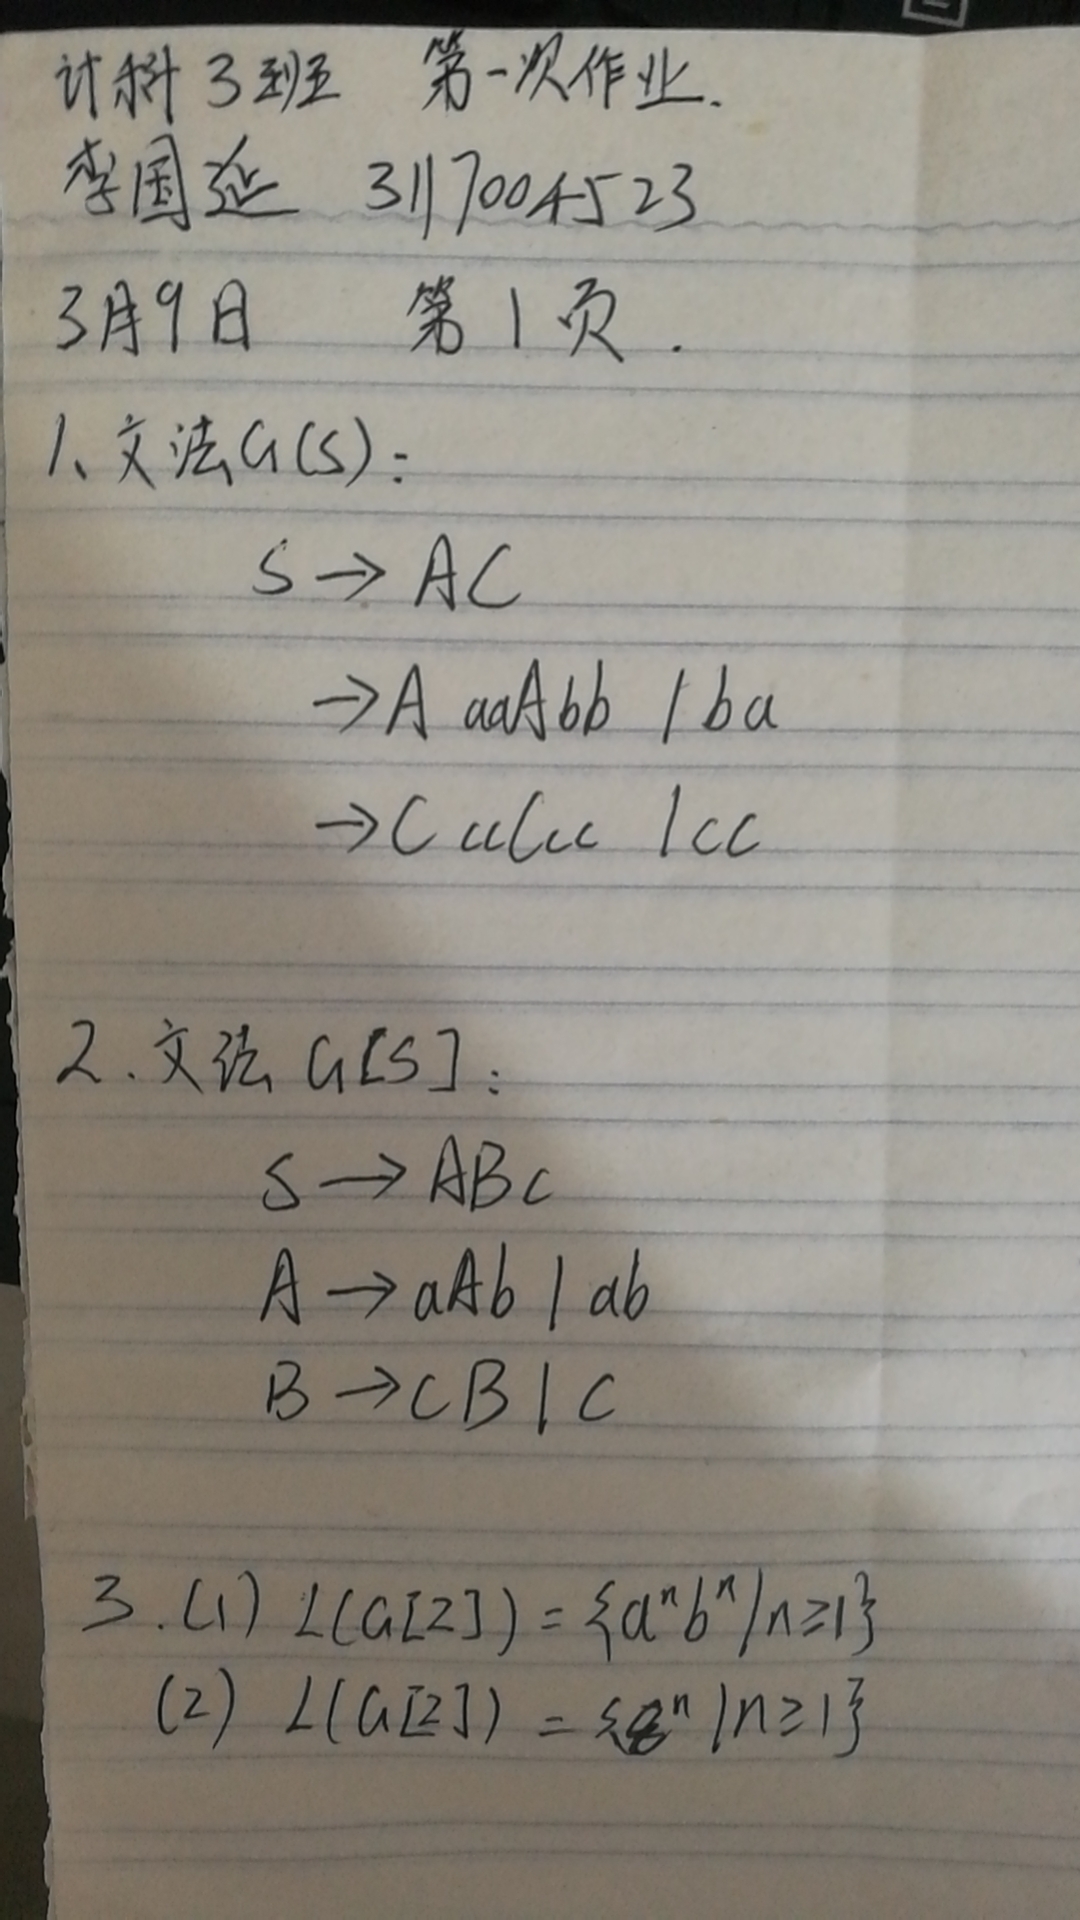 计科3班 第一次作业.
李国延 3117004523
3月9日 第1页.
1、文法G(S):
S→AC
→A aaAbb |ba
→C ccCcc |cc
2.文法G[S]:
S→ABc
A→aAb|ab
B→cB|c
3.(1) L(G[Z])={aⁿbⁿ|n≥1}
(2) L(G[Z])={ⁿ|n≥1}